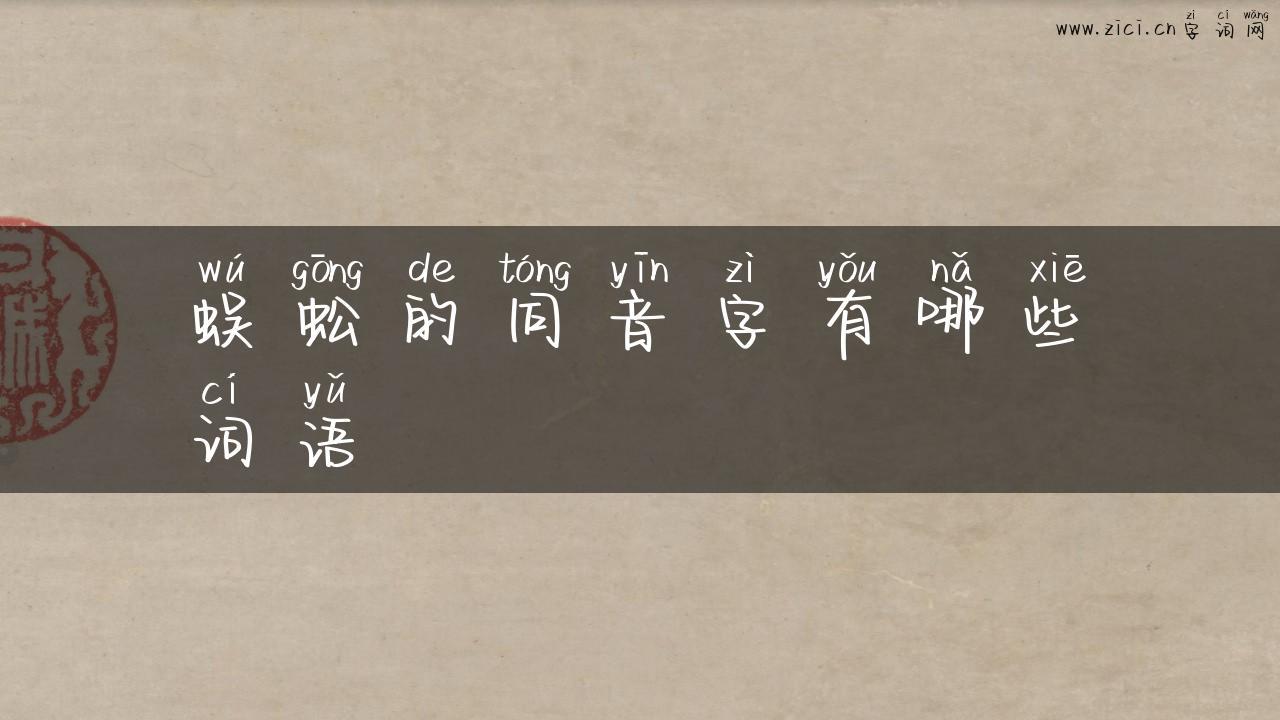 zì cí wǎng
www.zici.cn字词网
wú gōng de tóng yīn zì yǒu nǎ xiē
蜈蚣的同音字有哪些
cí yǔ
词语